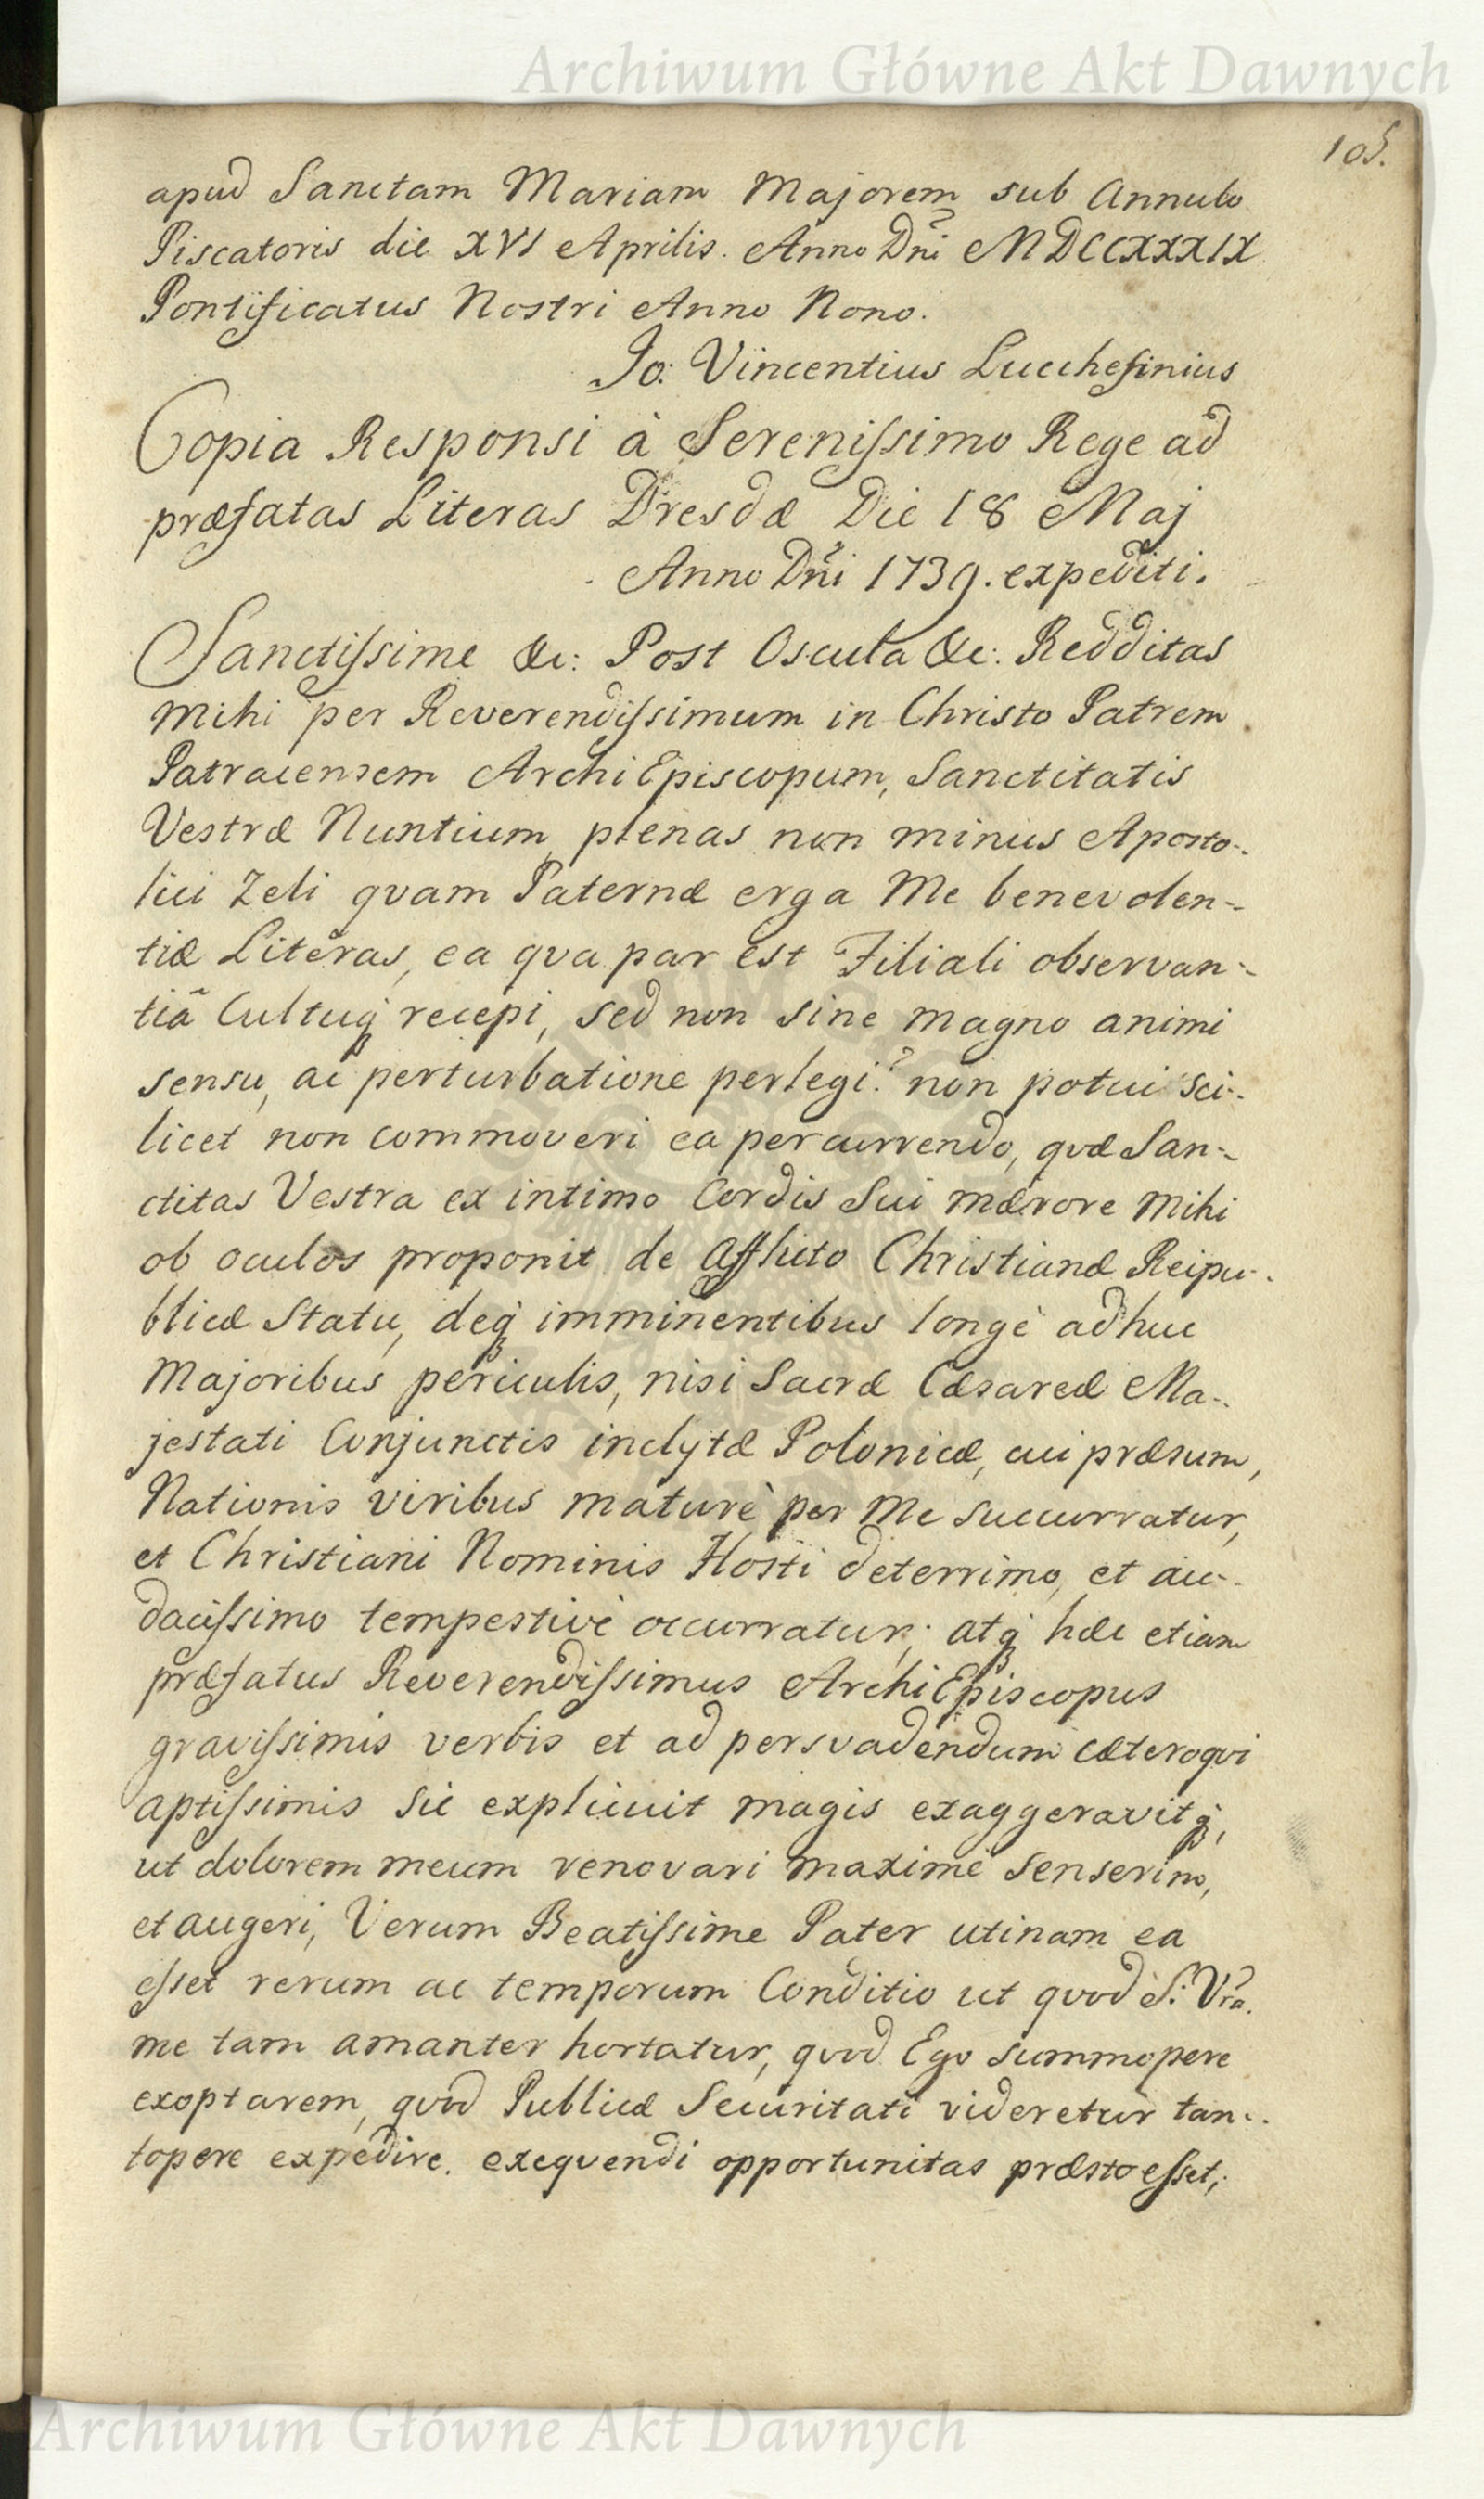 Archiwum Główne Akt Dawnych
105.
apud Sanctam Mariam Majorem sub Annulo
Piscatoris die XVI Aprilis. Anno Dni MDCCXXXIX
Pontificatus Nostri Anno Nono.
Jo: Vincentius Lucchesinius
Copia Responsi à Serenissimo Rege ad
præfatas Literas Dresdæ Die 18 Maj
Anno Dni 1739. expediti.
Sanctissime &c: Post Oscula &c: Redditas
Mihi per Reverendissimum in Christo Patrem
Patracensem ArchiEpiscopum, Sanctitatis
Vestræ Nuntium plenas non minus Aposto-
lici Zeli qvam Paternæ erga Me benevolen-
tiæ Literas, ea qva par est Filiali observan-
tiâ Cultuq recepi, sed non sine magno animi
sensu, ac perturbatione perlegi: non potui sci-
licet non commoveri ea percurrendo, qvæ San-
ctitas Vestra ex intimo Cordis Sui mærore Mihi
ob oculos proponit de afflicto Christianæ Reipu-
blicæ Statu, deq imminentibus longè adhuc
Majoribus periculis, nisi Sacræ Cæsareæ Ma-
jestati Conjunctis inclytæ Polonicæ, cui præsum,
Nationis viribus maturè per Me succurratur,
et Christiani Nominis Hosti deterrimo, et au-
dacissimo tempestivè occurratur; atq hæc etiam
præfatus Reverendissimus ArchiEpiscopus
gravissimis verbis et ad persvadendum cæteroqvi
aptissimis sic explicuit magis exaggeravitq,
ut dolorem meum renovari maximè senserim,
et augeri, Verum Beatissime Pater utinam ea
esset rerum ac temporum Conditio ut qvod S: Vra.
me tam amanter hortatur, qvod Ego summopere
exoptarem, qvod Publicæ Securitati videretur tan-
topere expedire. exeqvendi opportunitas præsto esset;
Archiwum Główne Akt Dawnych